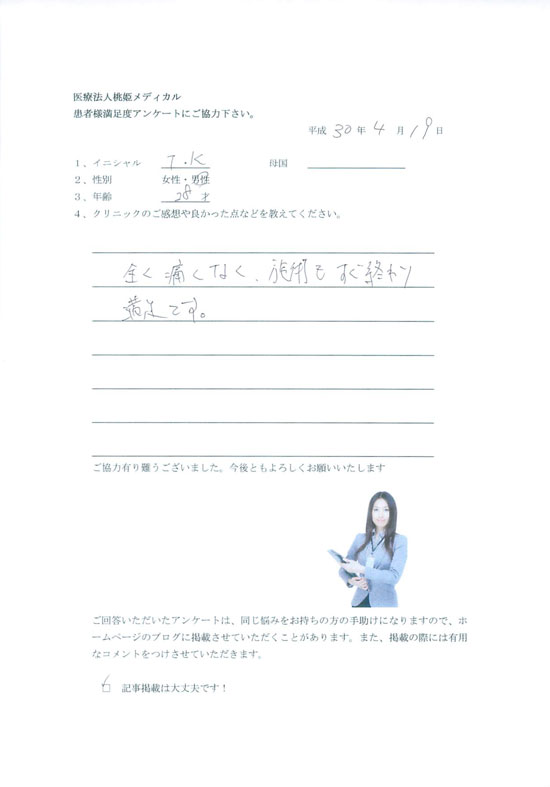 医療法人桃姫メディカル
患者様満足度アンケートにご協力下さい。
平成 30 年 4 月 19 日
1、イニシャル T.K 母国
2、性別 女性・男性
3、年齢 28 才
4、クリニックのご感想や良かった点などを教えてください。
全く痛くなく、施術もすぐ終わり
満足です。
ご協力有り難うございました。今後ともよろしくお願いいたします
ご回答いただいたアンケートは、同じ悩みをお持ちの方の手助けになりますので、ホ
ームページのブログに掲載させていただくことがあります。また、掲載の際には有用
なコメントをつけさせていただきます。
☑ 記事掲載は大丈夫です！